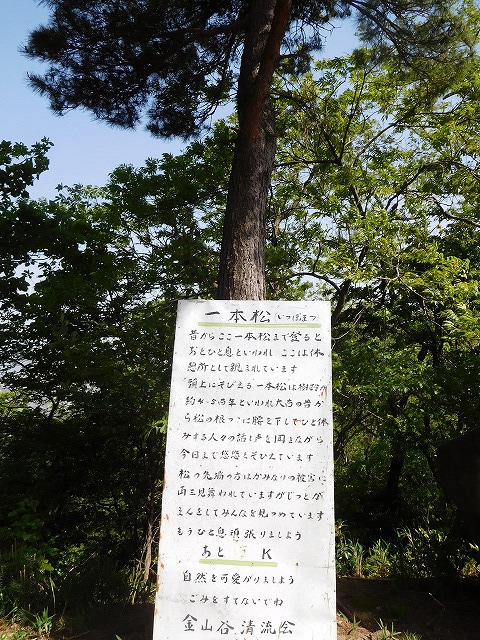 一本松 (いっぽんまつ)
昔からここ一本松まで登ると
あとひと息といわれ ここは休
憩所として親しまれています
頭上にそびえる一本松は樹齢が
約4〜5百年といわれ大古の昔か
ら松の根っこに腰を下してひと休
みする人々の話し声を聞きながら
今日まで悠悠とそびえています
松の先端の方はかみなりの被害に
両三見舞われていますがじっとが
まんをしてみんなを見つめています
もうひと息頑張りましよう
あと K
自然を可愛がりましよう
ごみをすてないでね
金山谷清流会